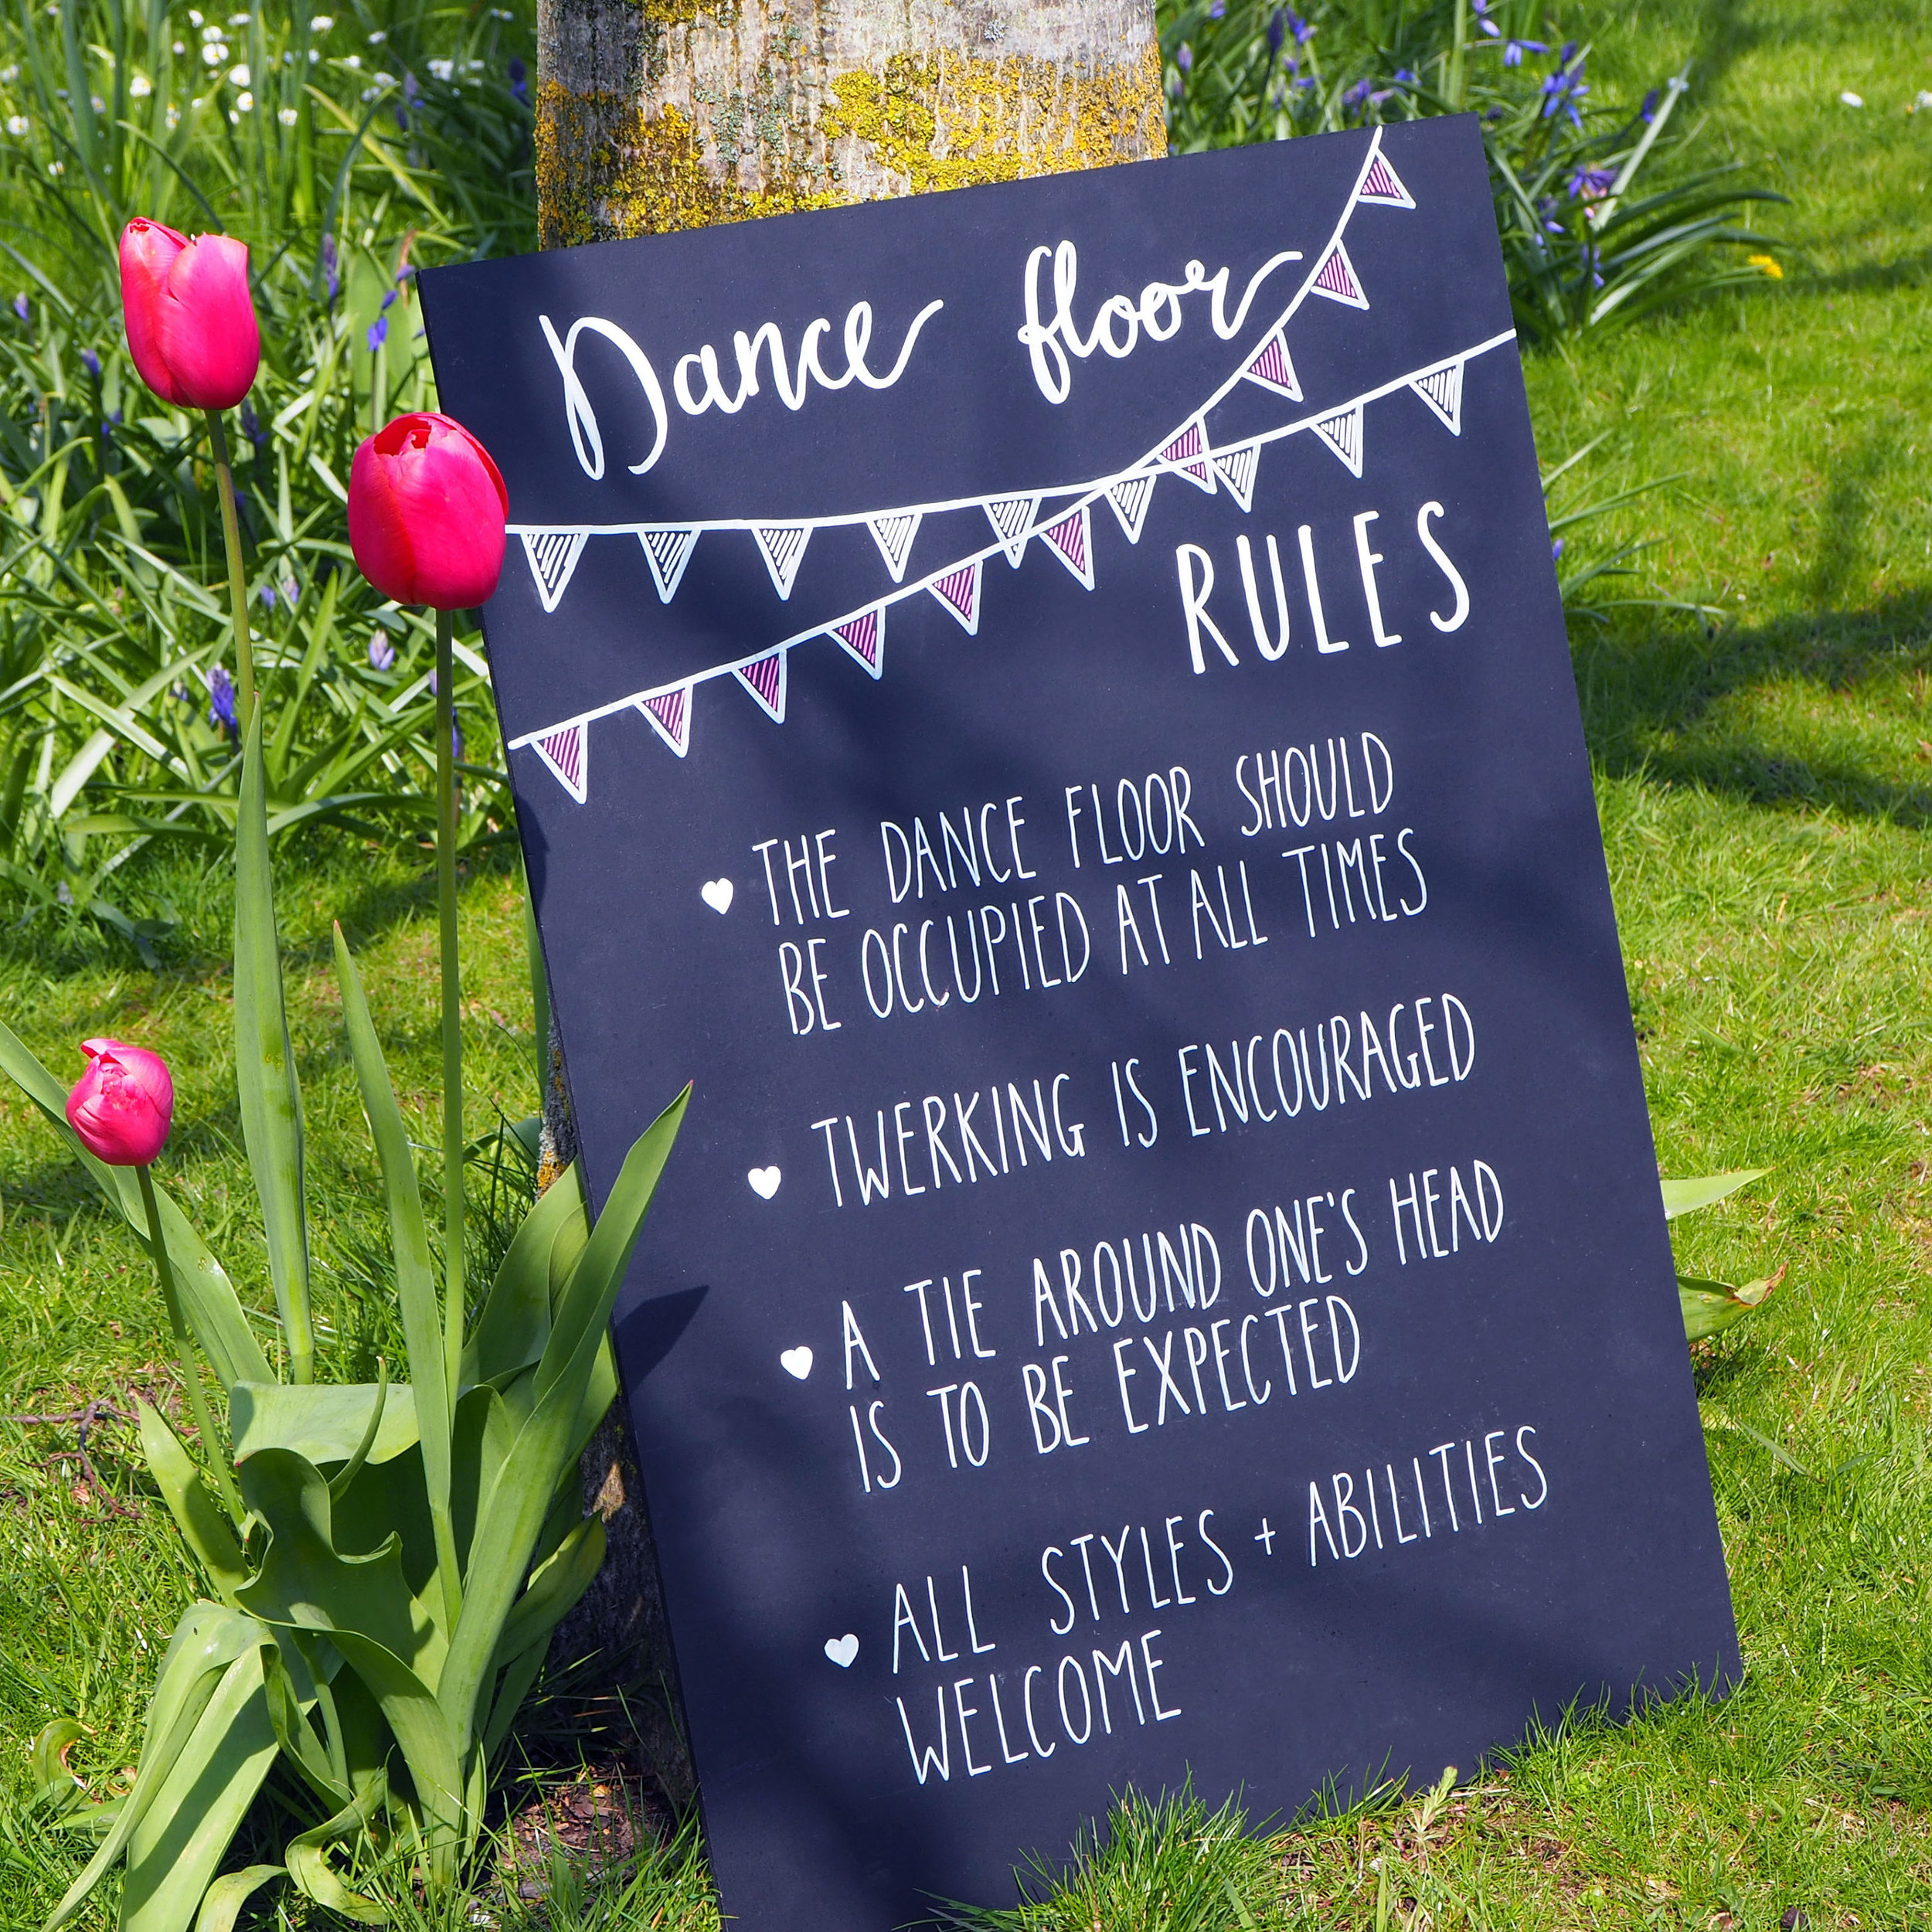 Dance floor
RULES
THE DANCE FLOOR SHOULD
BE OCCUPIED AT ALL TIMES
TWERKING IS ENCOURAGED
A TIE AROUND ONE'S HEAD
IS TO BE EXPECTED
ALL STYLES + ABILITIES
WELCOME